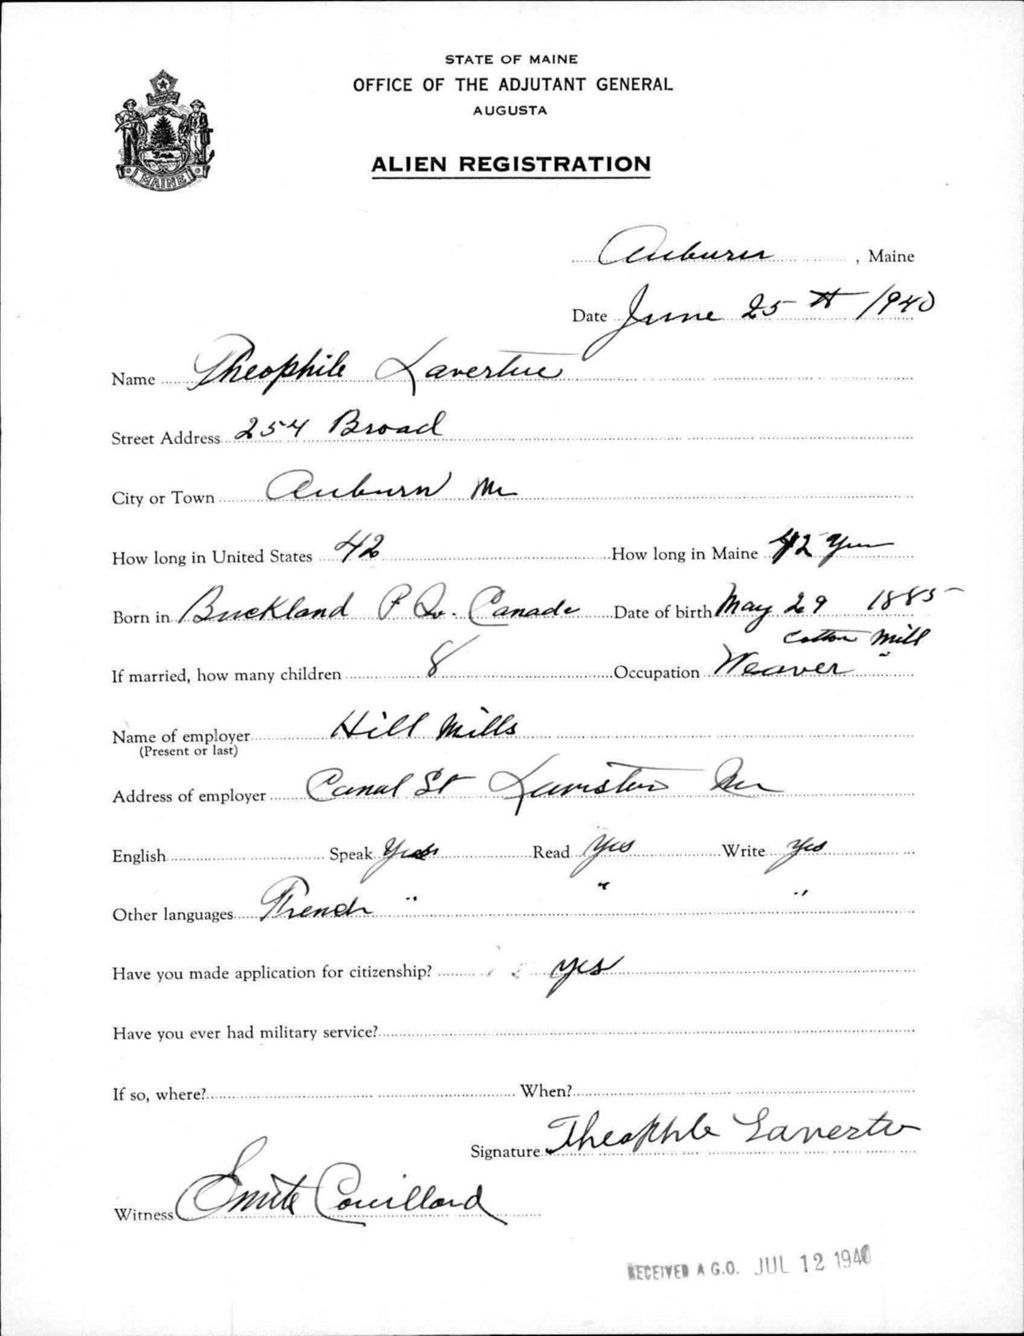 STATE OF MAINE
OFFICE OF THE ADJUTANT GENERAL
AUGUSTA
ALIEN REGISTRATION
MAINE
Auburn, Maine
Date June 25th 1940
Name Theophile Lavertue
Street Address 254 Broad
City or Town Auburn Me
How long in United States 42 How long in Maine 42 Yrs
Born in Buckland P Qu. Canada Date of birth May 29 1885
Cotton Mill
If married, how many children 8 Occupation Weaver "
Name of employer Hill Mills
(Present or last)
Address of employer Canal St Lewiston Me
English Speak Yes Read Yes Write Yes
Other languages French " " "
Have you made application for citizenship? yes
Have you ever had military service?
If so, where? When?
Signature Theophile Lavertu
Witness Couillard
RECEIVED A.G.O. JUL 12 1940